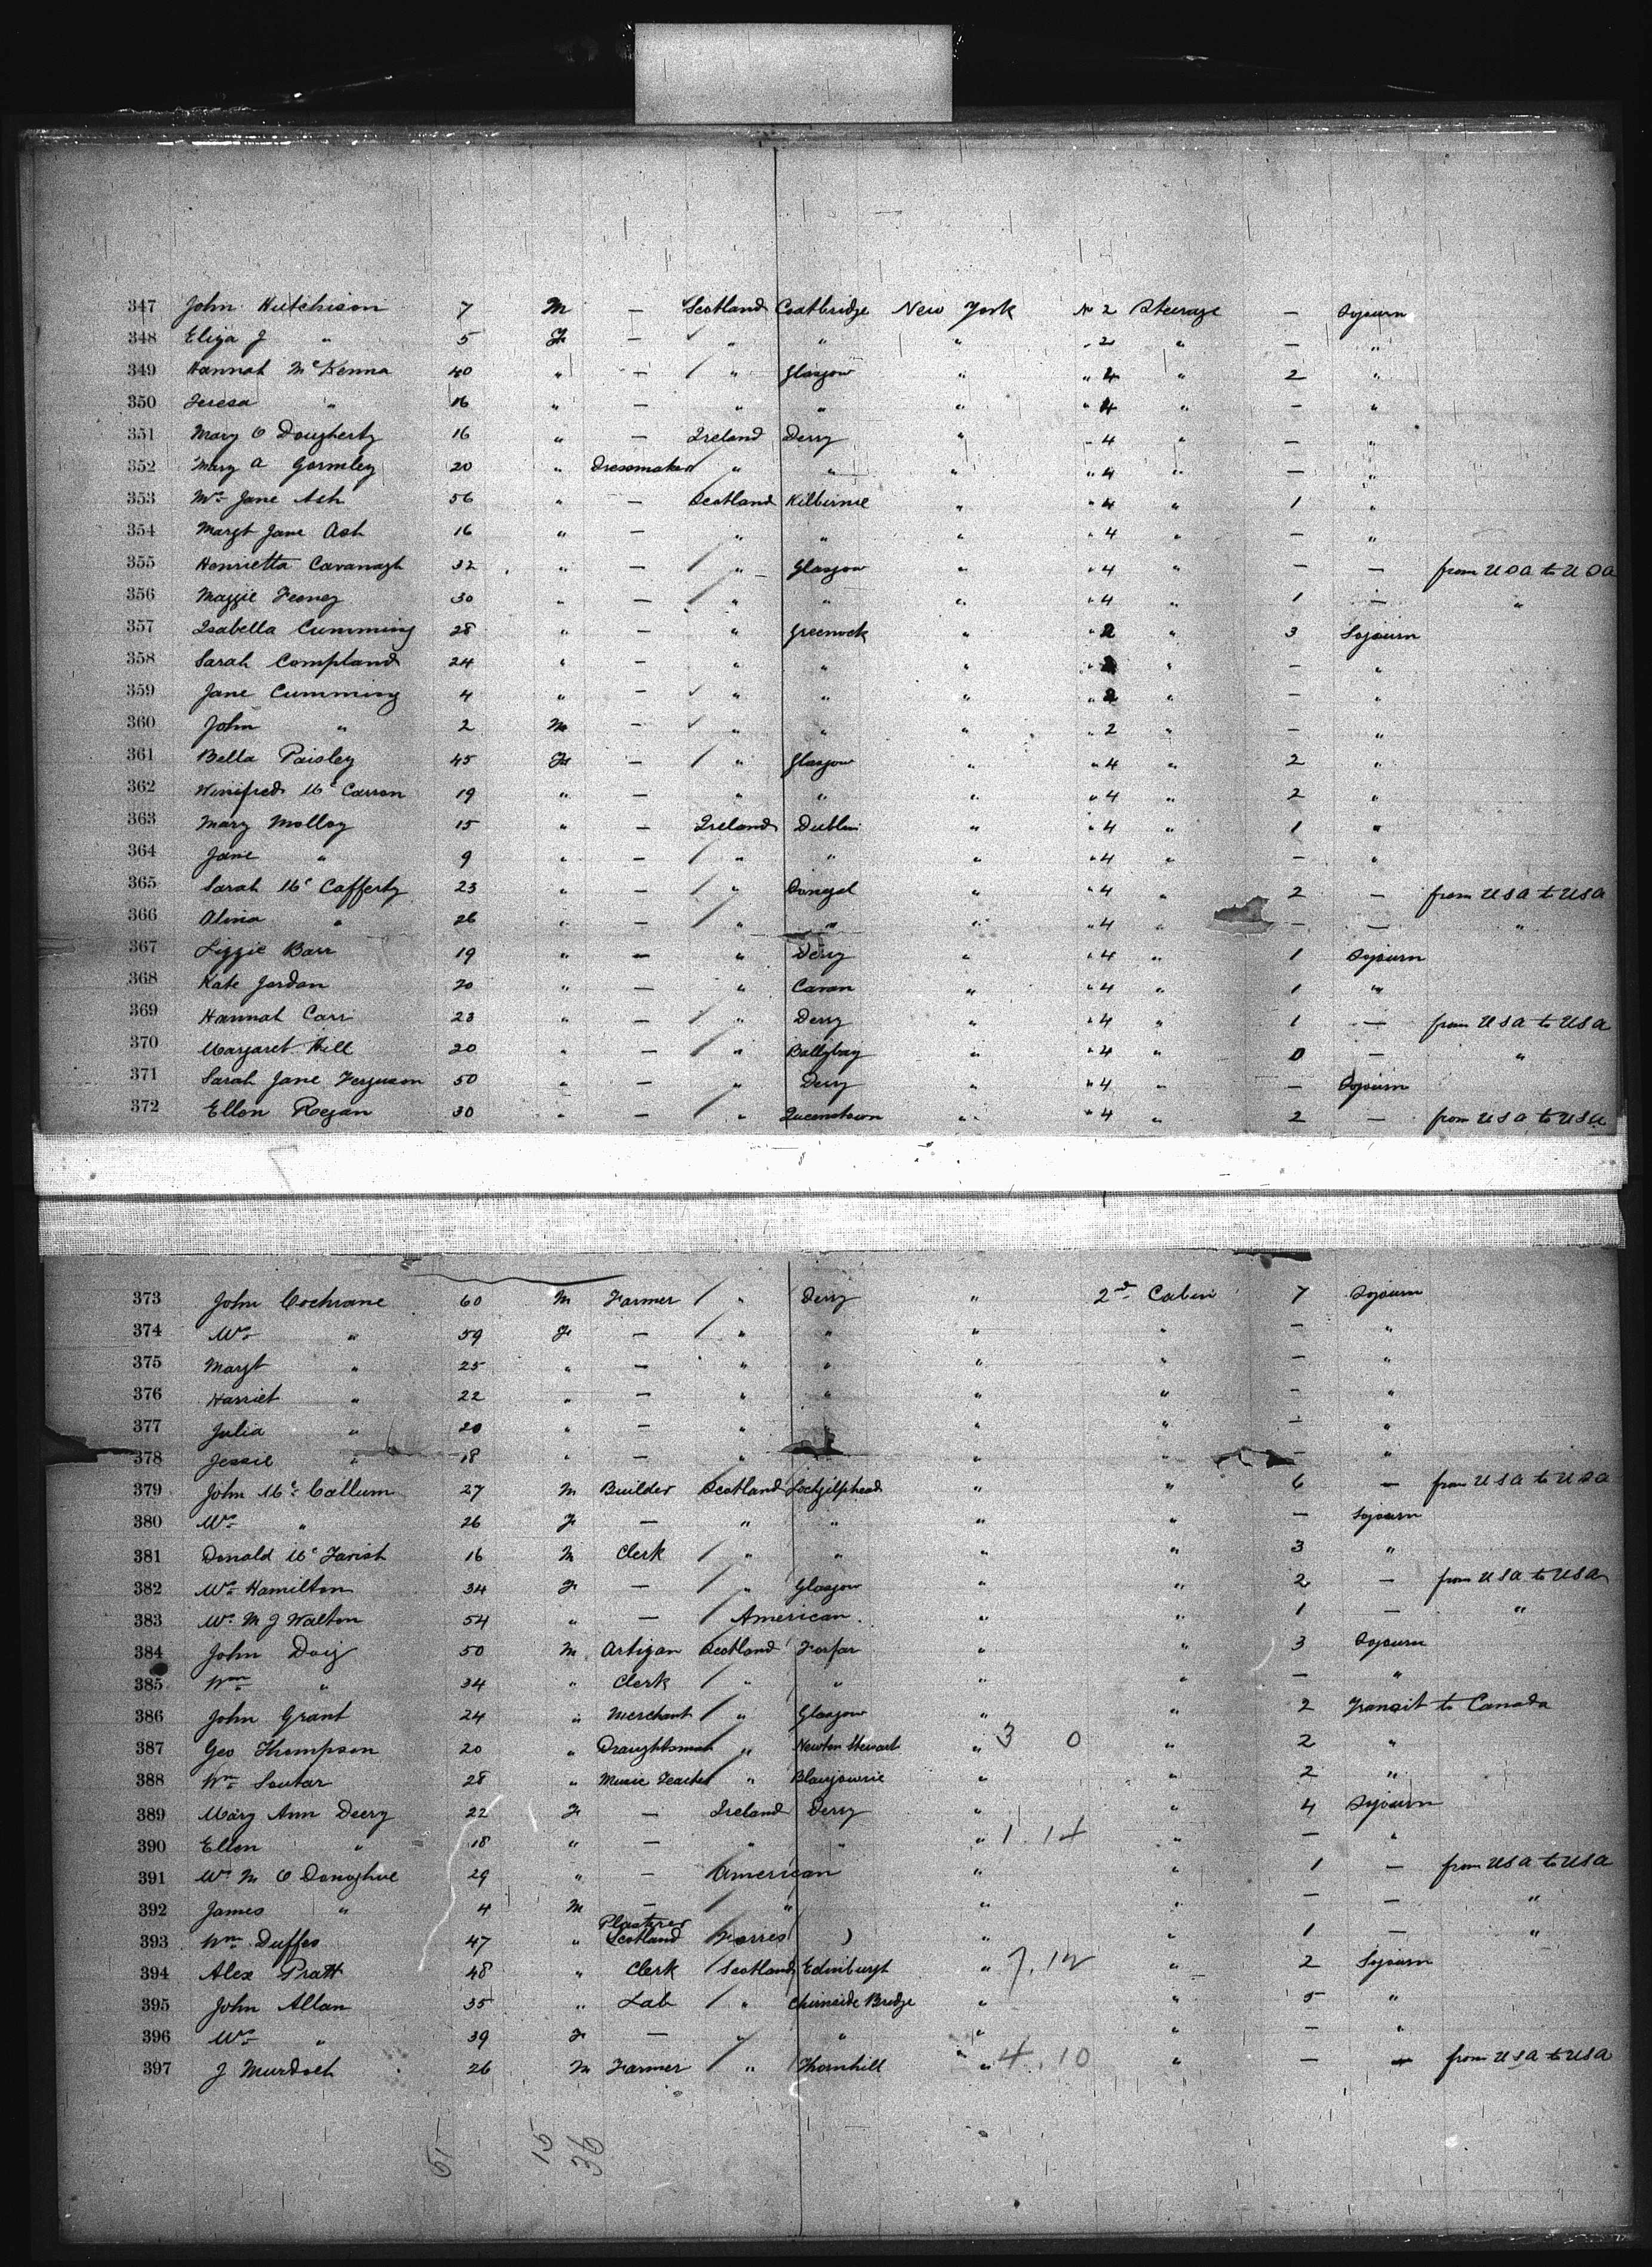 347 John Hutchison 7 M — Scotland Coatbridge New York No 2 Steerage — Sojourn
348 Eliza J " 5 F — " " " " 2 " — "
349 Hannah McKenna 40 " — " Glasgow " " 4 " 2 "
350 Teresa " 16 " — " " " " 4 " — "
351 Mary O Dougherty 16 " — Ireland Derry " " 4 " — "
352 Mary A Gormley 20 " Dressmaker " " " " 4 " — "
353 Mrs Jane Ash 56 " — Scotland Kilbirnie " " 4 " 1 "
354 Margt Jane Ash 16 " — " " " " 4 " — "
355 Henrietta Cavanagh 32 " — " Glasgow " " 4 " — — from USA to USA
356 Maggie Feeney 30 " — " " " " 4 " 1 — "
357 Isabella Cumming 28 " — " Greenock " " 2 " 3 Sojourn
358 Sarah Compland 24 " — " " " " 2 " — "
359 Jane Cumming 4 " — " " " " 2 " — "
360 John " 2 M — " " " " 2 " — "
361 Bella Paisley 45 F — " Glasgow " " 4 " 2 "
362 Winifred McCarron 19 " — " " " " 4 " 2 "
363 Mary Molloy 15 " — Ireland Dublin " " 4 " 1 "
364 Jane " 9 " — " " " " 4 " — "
365 Sarah McCafferty 23 " — " Donegal " " 4 " 2 — from USA to USA
366 Alina " 26 " — " " " " 4 " — — "
367 Lizzie Barr 19 " — " Derry " " 4 " 1 Sojourn
368 Kate Jordan 20 " — " Cavan " " 4 " 1 "
369 Hannah Carr 23 " — " Derry " " 4 " 1 — from USA to USA
370 Margaret Hill 20 " — " Ballybay " " 4 " 0 — "
371 Sarah Jane Ferguson 50 " — " Derry " " 4 " — Sojourn
372 Ellen Regan 30 " — " Queenstown " " 4 " 2 — from USA to USA
373 John Cochrane 60 M Farmer " Derry " 2nd Cabin 7 Sojourn
374 Mrs " 59 F — " " " " — "
375 Margt " 25 " — " " " " — "
376 Harriet " 22 " — " " " " — "
377 Julia " 20 " — " " " — "
378 Jessie " 18 " — " " " — "
379 John McCallum 27 M Builder Scotland Lochgilphead " " 6 — from USA to USA
380 Mrs " 26 F — " " " " — Sojourn
381 Donald McTavish 16 M Clerk " " " " 3 "
382 Mrs Hamilton 34 F — " Glasgow " " 2 — from USA to USA
383 Mrs M J Walton 54 " — American " " 1 — "
384 John Doig 50 M Artizan Scotland Forfar " " 3 Sojourn
385 Wm " 34 " Clerk " " " " — "
386 John Grant 24 " Merchant " Glasgow " " 2 Transit to Canada
387 Geo Thompson 20 " Draughtsman " Newton Stewart " 3 0 " 2 "
388 Wm Soutar 28 " Music Teacher " Blairgowrie " " 2 "
389 Mary Ann Deery 22 F — Ireland Derry " " 4 Sojourn
390 Ellen " 18 " — " " " 1.14 " — "
391 Mrs M O Donoghue 29 " — American " " 1 — from USA to USA
392 James " 4 M — " " " — — "
393 Wm Duffes 47 " Plasterer Scotland Forres " " 1 — "
394 Alex Pratt 48 " Clerk Scotland Edinburgh " 7.12 " 2 Sojourn
395 John Allan 35 " Lab " Chirnside Bridge " " 5 "
396 Mrs " 39 F — " " " " — "
397 J Murdoch 26 M Farmer " Thornhill " 4.10 " — — from USA to USA
51 15 36